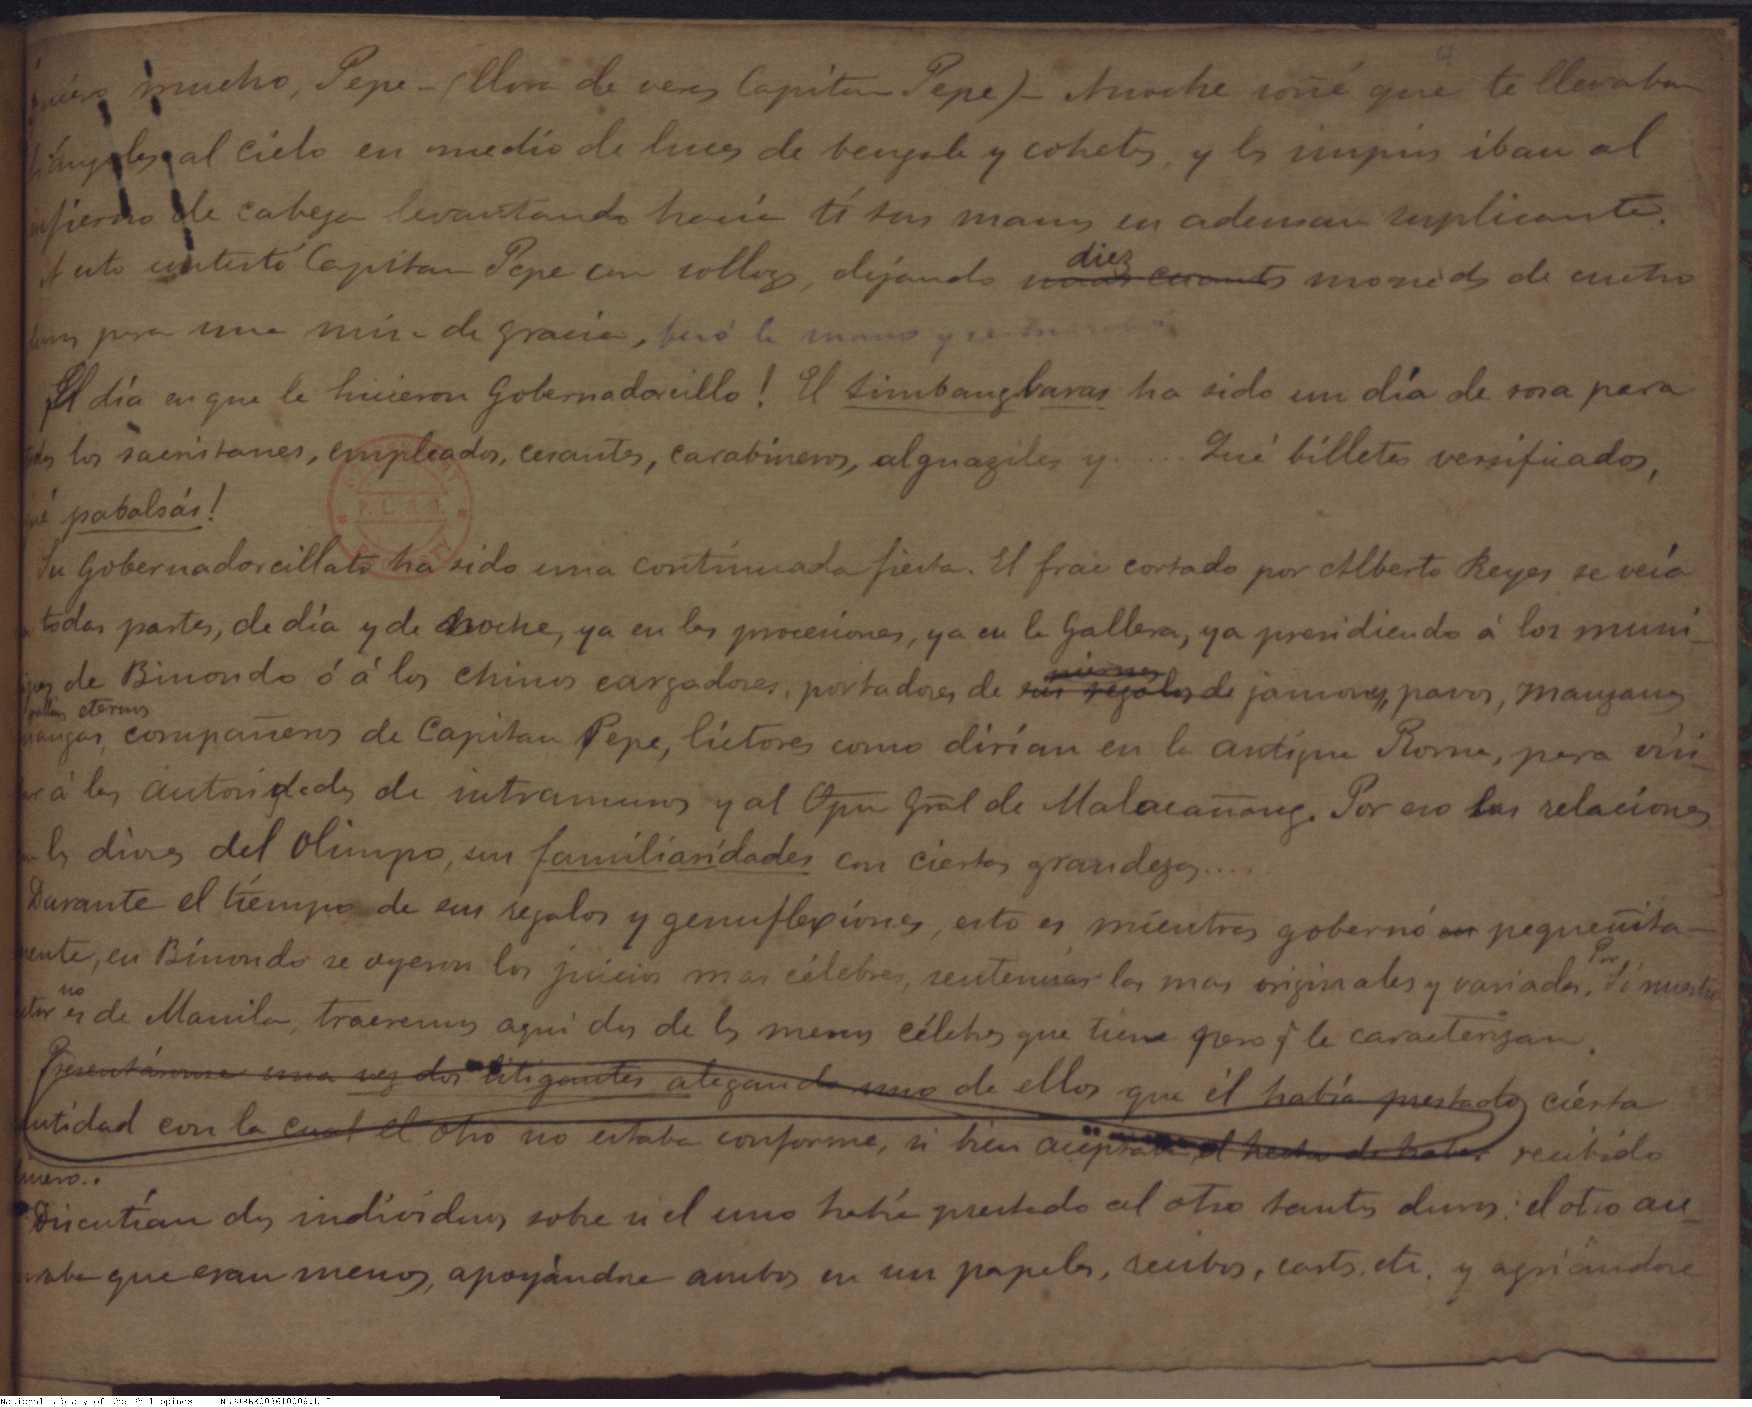 quiero mucho, Pepe - (llora de veras Capitan Pepe) - Anoche soñé que te llevaban
los ángeles al cielo en medio de luces de bengala y cohetes, y los impíos iban al
infierno de cabeza levantando hacia tí sus manos en ademan suplicante.
A esto contestó Capitan Pepe con sollozos, dejando unas cuantos diez monedas de cuatro
duros para una misa de gracia, besó la mano y
El día en que le hicieron Gobernadorcillo! El simbangbaras ha sido un día de rosa para
todos los sacristanes, empleados, cesantes, carabineros, alguaziles y..... Qué billetes versificados,
qué pabalsás!
Su Gobernadorcillato ha sido una continuada fiesta. El frac cortado por Alberto Reyes se veía
en todas partes, de día y de noche, ya en las procesiones, ya en la Gallera, ya presidiendo á los muni-
cipes de Binondo ó á los chinos cargadores, portadores de sus regalos piernas de jamones, pavos, manzanas
mangas, eternos compañeros de Capitan Pepe, lictores como dirían en la antigua Roma, para visi-
tar á las autoridades de intramuros y al Cpn Gral de Malacañang. Por eso sus relaciones
con los dioses del Olimpo, sus familiaridades con ciertas grandezas....
Durante el tiempo de sus regalos y genuflexiones, esto es mientras gobernó en pequeñita-
mente, en Binondo se oyeron los juicios mas célebres, sentencias las mas originales y variadas. Por Si nuestro
lector no es de Manila, traeremos aqui dos de los menos célebres que tiene pero q le caracterizan.
Presentáronse una vez dos litigantes alegando uno de ellos que él había prestado cierta
cantidad con la cual el otro no estaba conforme, si bien aceptaba el hecho de haber recibido
dinero..
Discutían dos individuos sobre si el uno había prestado al otro tantos duros; el otro ase-
guraba que eran menos, apoyándose ambos en un papeles, recibos, carts. etc. y agriándose